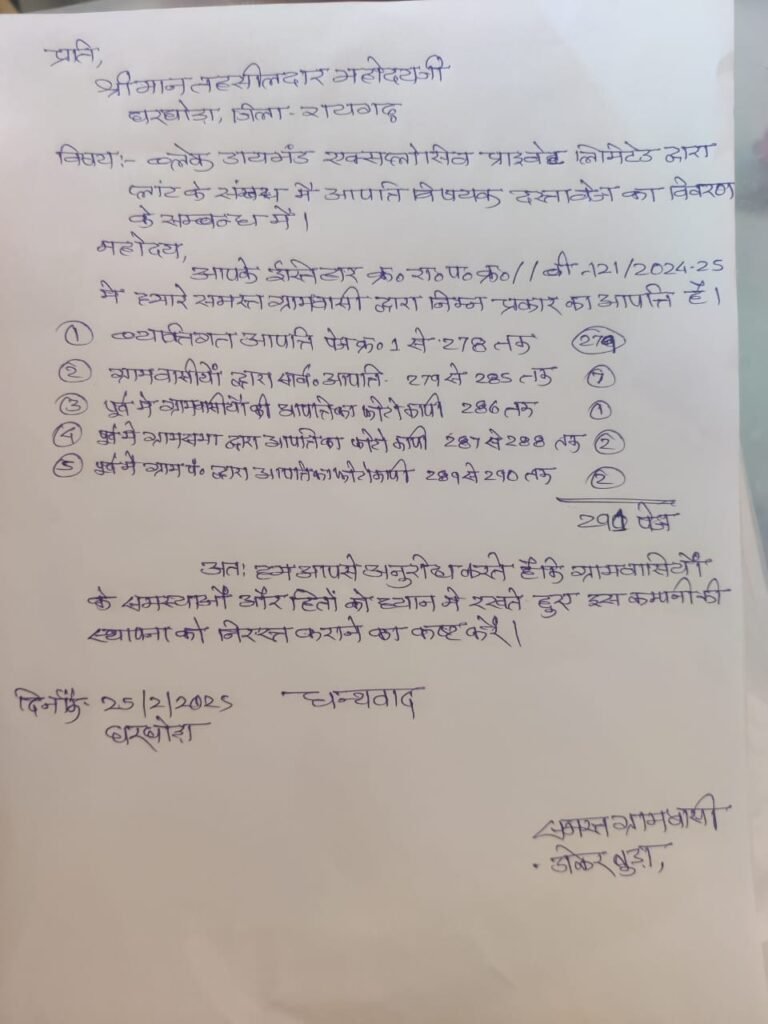 प्रति,
श्रीमान तहसीलदार महोदयजी
घरघोड़ा, जिला- रायगढ़
विषय:- ब्लेक डायमंड एक्सप्लोसिव प्राइवेट लिमिटेड द्वारा
प्लांट के संबंध में आपति विषयक दस्तावेज का विवरण
के सम्बन्ध में।
महोदय,
आपके ईस्तेहार क्र॰ रा॰प॰क्र॰// बी-121/2024-25
में हमारे समस्त ग्रामवासी द्वारा निम्न प्रकार का आपत्ति है।
① व्यक्तिगत आपत्ति पेज क्र॰ 1 से 278 तक 279
② ग्रामवासीयों द्वारा सार्व॰ आपति- 279 से 285 तक 7
③ पूर्व में ग्रामवासीयों की आपत्ति का फोटो कापी 286 तक ①
④ पूर्व में ग्रामसभा द्वारा आपति का फोटो कापी 287 से 288 तक ②
⑤ पूर्व में ग्राम पं॰ द्वारा आपति का फोटोकापी 289 से 290 तक ②
291 पेज
अत: हम आपसे अनुरोध करते हैं कि ग्रामवासियों
के समस्याओं और हितों को ध्यान में रखते हुए इस कम्पनी की
स्थापना को निरस्त कराने का कष्ट करें।
दिनाँक- 25/2/2025 धन्यवाद
घरघोड़ा
समस्त ग्रामवासी